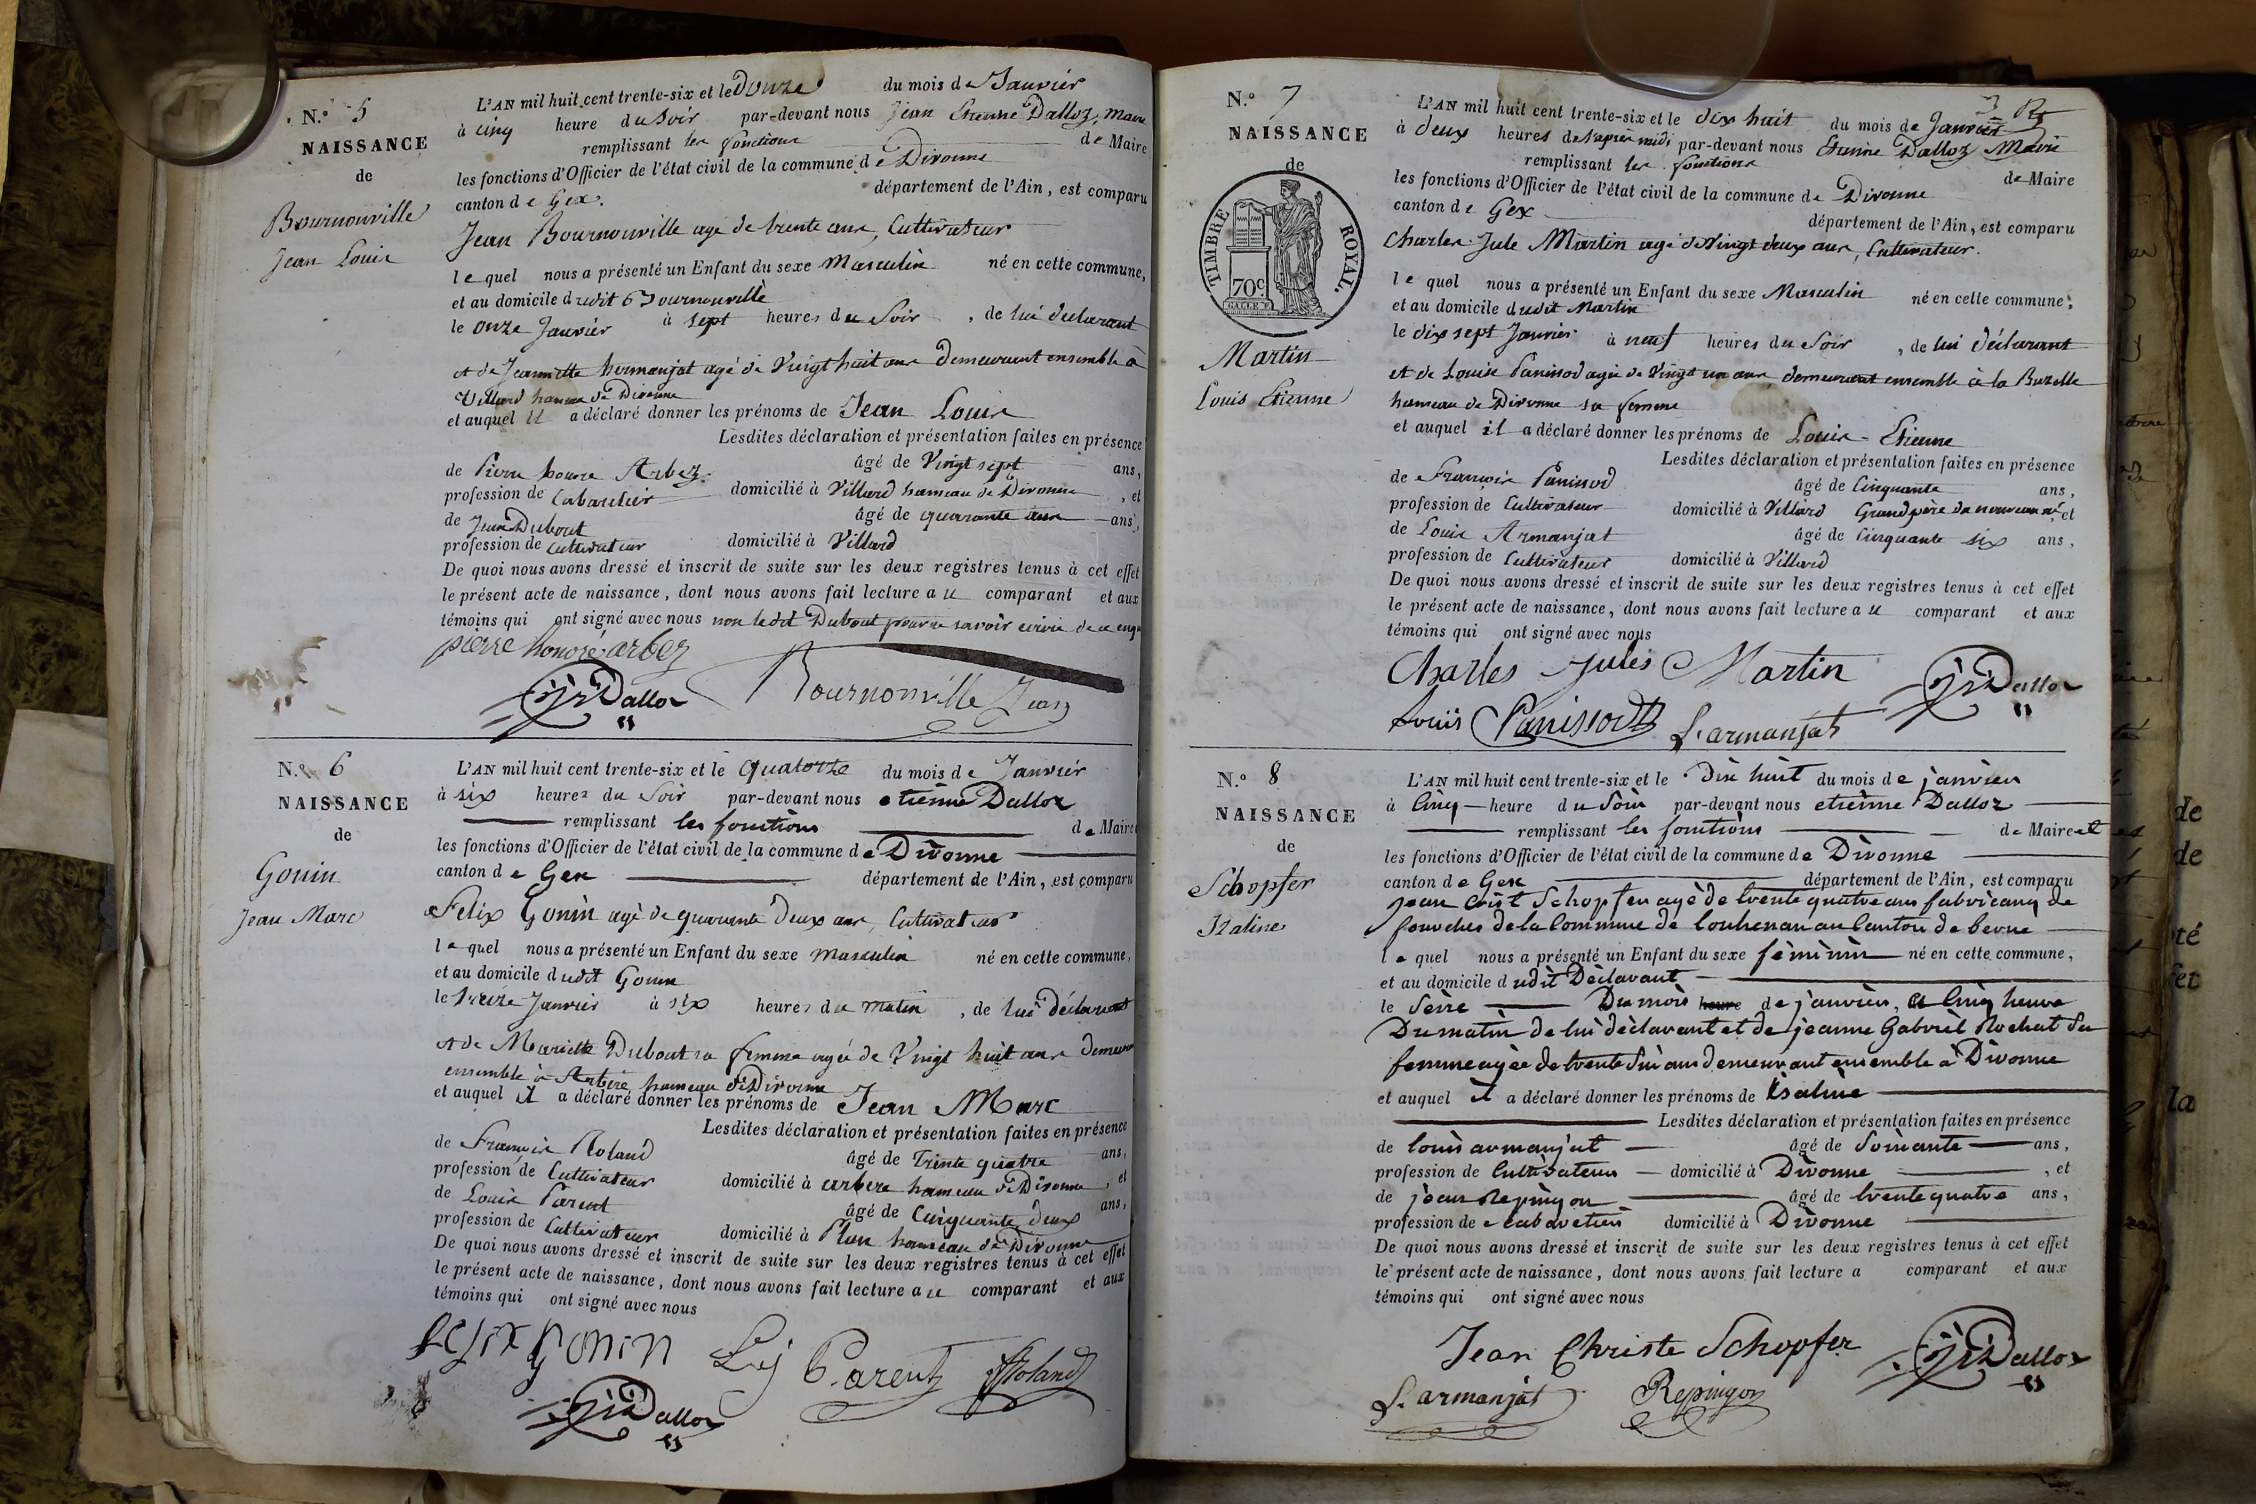 N.º 5
NAISSANCE
de
Bournonville
Jean Louis
L'AN mil huit cent trente-six et le Douze du mois de Janvier
à cinq heure du Soir par-devant nous Jean Etienne Dalloz, Maire
remplissant les fonctions de Maire
les fonctions d'Officier de l'état civil de la commune de Divonne
canton de Gex. département de l'Ain, est comparu
Jean Bournonville agé de trente ans, Cultivateur
lequel nous a présenté un Enfant du sexe Masculin né en cette commune,
et au domicile dudit Bournonville
le onze Janvier à sept heures du Soir, de lui déclarant
et de Jeannette hermanjat agé de Vingt huit ans demeurant ensemble à
Villard hameau de Divonne
et auquel il a déclaré donner les prénoms de Jean Louis
Lesdites déclaration et présentation faites en présence
de Pierre honore Arbez. âgé de Vingt sept ans,
profession de Cabaretier domicilié à Villard hameau de Divonne, et
de Jean Dubout âgé de quarante ans ans,
profession de Cultivateur domicilié à Villard
De quoi nous avons dressé et inscrit de suite sur les deux registres tenus à cet effet
le présent acte de naissance, dont nous avons fait lecture au comparant et aux
témoins qui ont signé avec nous non ledit Dubout pour ne savoir écrire de ce enqu
pierre honoré arbez
Dalloz
Bournonville Jean
N.º 6
NAISSANCE
de
Gonin
Jean Marc
L'AN mil huit cent trente-six et le quatorze du mois de Janvier
à six heures du Soir par-devant nous etienne Dalloz
remplissant les fonctions de Maire
les fonctions d'Officier de l'état civil de la commune de Divonne
canton de Gex département de l'Ain, est comparu
Felix Gonin agé de quarante deux ans, Cultivateur
lequel nous a présenté un Enfant du sexe masculin né en cette commune,
et au domicile dudit Gonin
le treize Janvier à six heures du matin, de lui déclarant
et de Mariette Dubout sa femme agée de Vingt huit ans demeur
ensemble à Arbère hameau de Divonne
et auquel il a déclaré donner les prénoms de Jean Marc
Lesdites déclaration et présentation faites en présence
de François Roland âgé de Trente quatre ans,
profession de Cultivateur domicilié à arbere hameau de Divonne, et
de Louis Parent âgé de Cinquante deux ans,
profession de Cultivateur domicilié à Plan hameau de Divonne
De quoi nous avons dressé et inscrit de suite sur les deux registres tenus à cet effet
le présent acte de naissance, dont nous avons fait lecture au comparant et aux
témoins qui ont signé avec nous
Felix Gonin Parent Roland
Dalloz
N.º 7
NAISSANCE
de
TIMBRE ROYAL.
70c
Martin
Louis Etienne
L'AN mil huit cent trente-six et le dix huit du mois de Janvier
à deux heures de l'après midi par-devant nous Etienne Dalloz Maire
remplissant les fonctions de Maire
les fonctions d'Officier de l'état civil de la commune de Divonne
canton de Gex département de l'Ain, est comparu
Charles Jule Martin agé de Vingt deux ans, Cultivateur.
lequel nous a présenté un Enfant du sexe Masculin né en cette commune,
et au domicile dudit Martin
le dix sept Janvier à neuf heures du Soir, de lui déclarant
et de Louise Panissod agée de Vingt un ans, demeurant ensemble à la
hameau de Divonne sa femme
et auquel il a déclaré donner les prénoms de Louis-Etienne
Lesdites déclaration et présentation faites en présence
de François Panissod âgé de Cinquante ans,
profession de Cultivateur domicilié à Villard Grand père du nouveau né et
de Louis Armanjat âgé de Cinquante six ans,
profession de Cultivateur domicilié à Villard
De quoi nous avons dressé et inscrit de suite sur les deux registres tenus à cet effet
le présent acte de naissance, dont nous avons fait lecture au comparant et aux
témoins qui ont signé avec nous
Charles Jules Martin
Dalloz
Louis Panissod L. armanjat
N.º 8
NAISSANCE
de
Schopfer
Izaline
L'AN mil huit cent trente-six et le Dix huit du mois de janvier
à Cinq heure du Soir par-devant nous etienne Dalloz
remplissant les fonctions de Maire et
les fonctions d'Officier de l'état civil de la commune de Divonne
canton de Gex département de l'Ain, est comparu
jean Crist Schopfer agè de trente quatre ans fabricang de
fourches de la Commune de louhenan au Canton de berne
lequel nous a présenté un Enfant du sexe fèminin né en cette commune,
et au domicile dudit Dèclarant
le Seize Du mois heure de janvier, a Cinq heure
Du matin de lui dèclarant et de jeanne Gabriel Rochat sa
femme agèe de trente Six ans demeurant ensemble à Divonne
et auquel il a déclaré donner les prénoms de Isaline
Lesdites déclaration et présentation faites en présence
de louis armanjat âgé de Soixante ans,
profession de Cultivateur domicilié à Divonne, et
de jean Repingon âgé de trente quatre ans,
profession de cabaretier domicilié à Divonne
De quoi nous avons dressé et inscrit de suite sur les deux registres tenus à cet effet
le présent acte de naissance, dont nous avons fait lecture a comparant et aux
témoins qui ont signé avec nous
Jean Christe Schopfer
Dalloz
L. armanjat Repingon